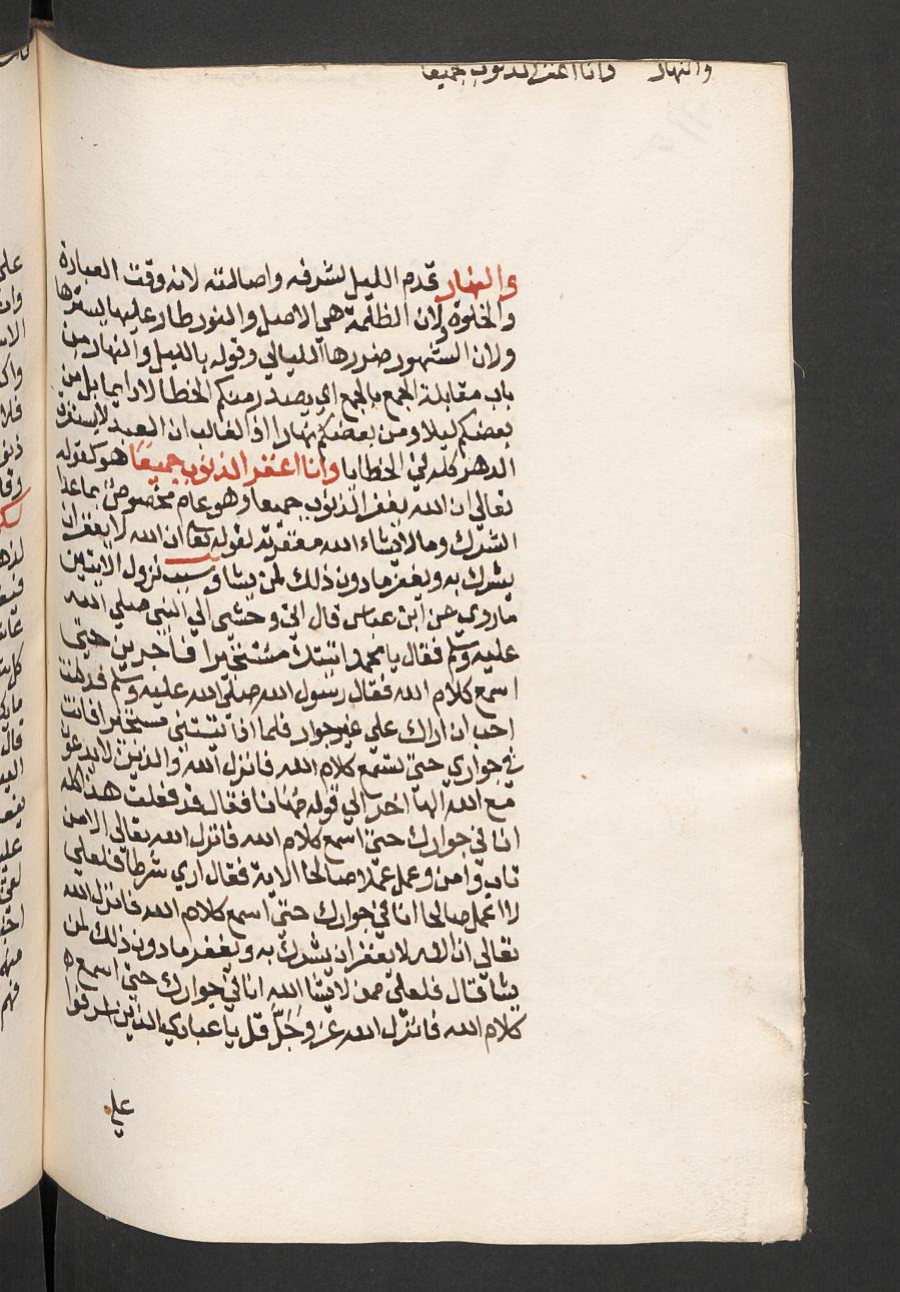 والنهار وانا اغفر الذنوب جميعا
والنهار قدم الليل لشرفه واصالته لانه وقت العبادة
والخلوة ولان الظلمة هي الاصل والنور طار عليها يسترها
ولان الشهور غررها الليالي وقوله بالليل والنهار من
باب مقابلة الجمع بالجمع اي يصدر منكم الخطا لا دايما بل من
بعضكم ليلا ومن بعضكم نهارا اذ الغالب ان العبد لا يستغرق
الدهر كله في الخطايا وانا اغفر الذنوب جميعا هو كقوله
تعالي ان الله يغفر الذنوب جميعا وهو عام مخصوص بما عدا
الشرك وما لا يشاء الله مغفرته لقوله تعالي ان الله لا يغفر ان
يشرك به ويغفر ما دون ذلك لمن يشا وسبب نزول الايتين
ما روي عن ابن عباس قال اتي وحشي الي النبي صلي الله
عليه وسلم فقال يا محمد اتيتك مستجيرا فاجرين حتي
اسمع كلام الله فقال رسول الله صلي الله عليه وسلم قد كنت
احب ان اراك علي غير جوار فلما اذ اتيتني مستجيرا فانت
في جواري حتي تسمع كلام الله فانزل الله والذين لا يدعون
مع الله الها اخر الي قوله مهانا فقال قد فعلت هذا كله
انا في جوارك حتي اسمع كلام الله فانزل الله تعالي الا من
تاب وامن وعمل عملا صالحا الاية فقال اري شرطا فلعلي
لا اعمل صالحا انا في جوارك حتي اسمع كلام الله فانزل الله
تعالي ان الله لا يغفر ان يشرك به ويغفر ما دون ذلك لمن
يشا قال فلعلي ممن لا يشا الله انا في جوارك حتي اسمع
كلام الله فانزل الله عز وجل قل يا عبادي الذين اسرفوا
علي